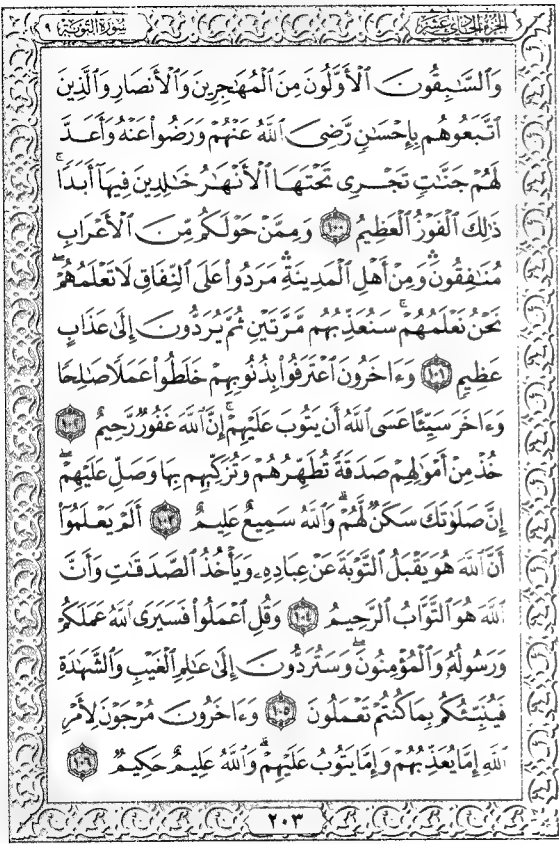 الجزء الحادي عشر
سورة التوبة ٩
وَٱلسَّٰبِقُونَ ٱلْأَوَّلُونَ مِنَ ٱلْمُهَٰجِرِينَ وَٱلْأَنصَارِ وَٱلَّذِينَ
ٱتَّبَعُوهُم بِإِحْسَٰنٍ رَّضِىَ ٱللَّهُ عَنْهُمْ وَرَضُوا۟ عَنْهُ وَأَعَدَّ
لَهُمْ جَنَّٰتٍ تَجْرِى تَحْتَهَا ٱلْأَنْهَٰرُ خَٰلِدِينَ فِيهَآ أَبَدًا ۚ
ذَٰلِكَ ٱلْفَوْزُ ٱلْعَظِيمُ ١٠٠ وَمِمَّنْ حَوْلَكُم مِّنَ ٱلْأَعْرَابِ
مُنَٰفِقُونَ ۖ وَمِنْ أَهْلِ ٱلْمَدِينَةِ ۖ مَرَدُوا۟ عَلَى ٱلنِّفَاقِ لَا تَعْلَمُهُمْ ۖ
نَحْنُ نَعْلَمُهُمْ ۚ سَنُعَذِّبُهُم مَّرَّتَيْنِ ثُمَّ يُرَدُّونَ إِلَىٰ عَذَابٍ
عَظِيمٍ ١٠١ وَءَاخَرُونَ ٱعْتَرَفُوا۟ بِذُنُوبِهِمْ خَلَطُوا۟ عَمَلًا صَٰلِحًا
وَءَاخَرَ سَيِّئًا عَسَى ٱللَّهُ أَن يَتُوبَ عَلَيْهِمْ ۚ إِنَّ ٱللَّهَ غَفُورٌ رَّحِيمٌ ١٠٢
خُذْ مِنْ أَمْوَٰلِهِمْ صَدَقَةً تُطَهِّرُهُمْ وَتُزَكِّيهِم بِهَا وَصَلِّ عَلَيْهِمْ ۖ
إِنَّ صَلَوٰتَكَ سَكَنٌ لَّهُمْ ۗ وَٱللَّهُ سَمِيعٌ عَلِيمٌ ١٠٣ أَلَمْ يَعْلَمُوٓا۟
أَنَّ ٱللَّهَ هُوَ يَقْبَلُ ٱلتَّوْبَةَ عَنْ عِبَادِهِۦ وَيَأْخُذُ ٱلصَّدَقَٰتِ وَأَنَّ
ٱللَّهَ هُوَ ٱلتَّوَّابُ ٱلرَّحِيمُ ١٠٤ وَقُلِ ٱعْمَلُوا۟ فَسَيَرَى ٱللَّهُ عَمَلَكُمْ
وَرَسُولُهُۥ وَٱلْمُؤْمِنُونَ ۖ وَسَتُرَدُّونَ إِلَىٰ عَٰلِمِ ٱلْغَيْبِ وَٱلشَّهَٰدَةِ
فَيُنَبِّئُكُم بِمَا كُنتُمْ تَعْمَلُونَ ١٠٥ وَءَاخَرُونَ مُرْجَوْنَ لِأَمْرِ
ٱللَّهِ إِمَّا يُعَذِّبُهُمْ وَإِمَّا يَتُوبُ عَلَيْهِمْ ۗ وَٱللَّهُ عَلِيمٌ حَكِيمٌ ١٠٦
٢٠٣